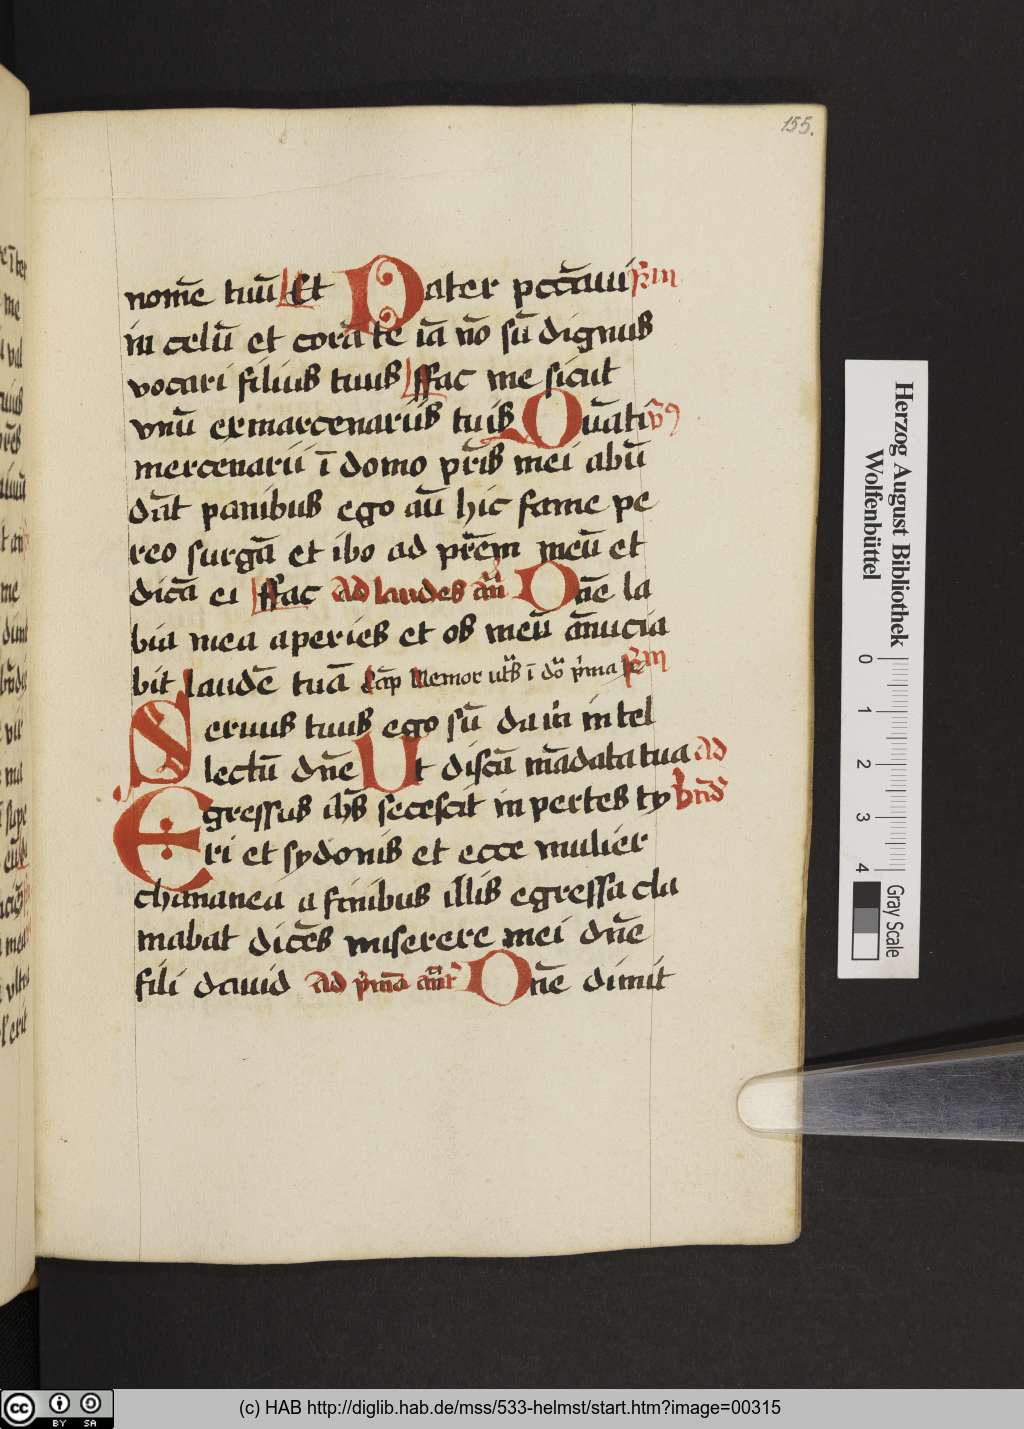 155.
nom̄e tuū Et Pater pccāui
in celū et corā te iā nō sū dignus
vocari filius tuus ffac me sicut
vnū ex marcenariis tuis Quāti
mercenarii ī domo pr̄is mei abū
dāt panibus ego aū hic fame pe
reo surgā et ibo ad pr̄em meū et
dicā ei ffac ad laudes an̄ Dn̄e la
bia mea aperies et os meū ānucia
bit laudē tuā Cap̄ Memor
Seruus tuus ego sū da m̄ intel
lectū dn̄e Ut discā mādata tua ad
Egressus ih̄s secescit in pertes ty bn̄d
ri et sydonis et ecce mulier
chananea a finibus illis egressa cla
mabat dicēs miserere mei dn̄e
fili dauid ad p̄ma an̄t Dn̄e dimit
Herzog August Bibliothek
Wolfenbüttel
0 1 2 3 4
Gray Scale
cc BY SA
(c) HAB http://diglib.hab.de/mss/533-helmst/start.htm?image=00315